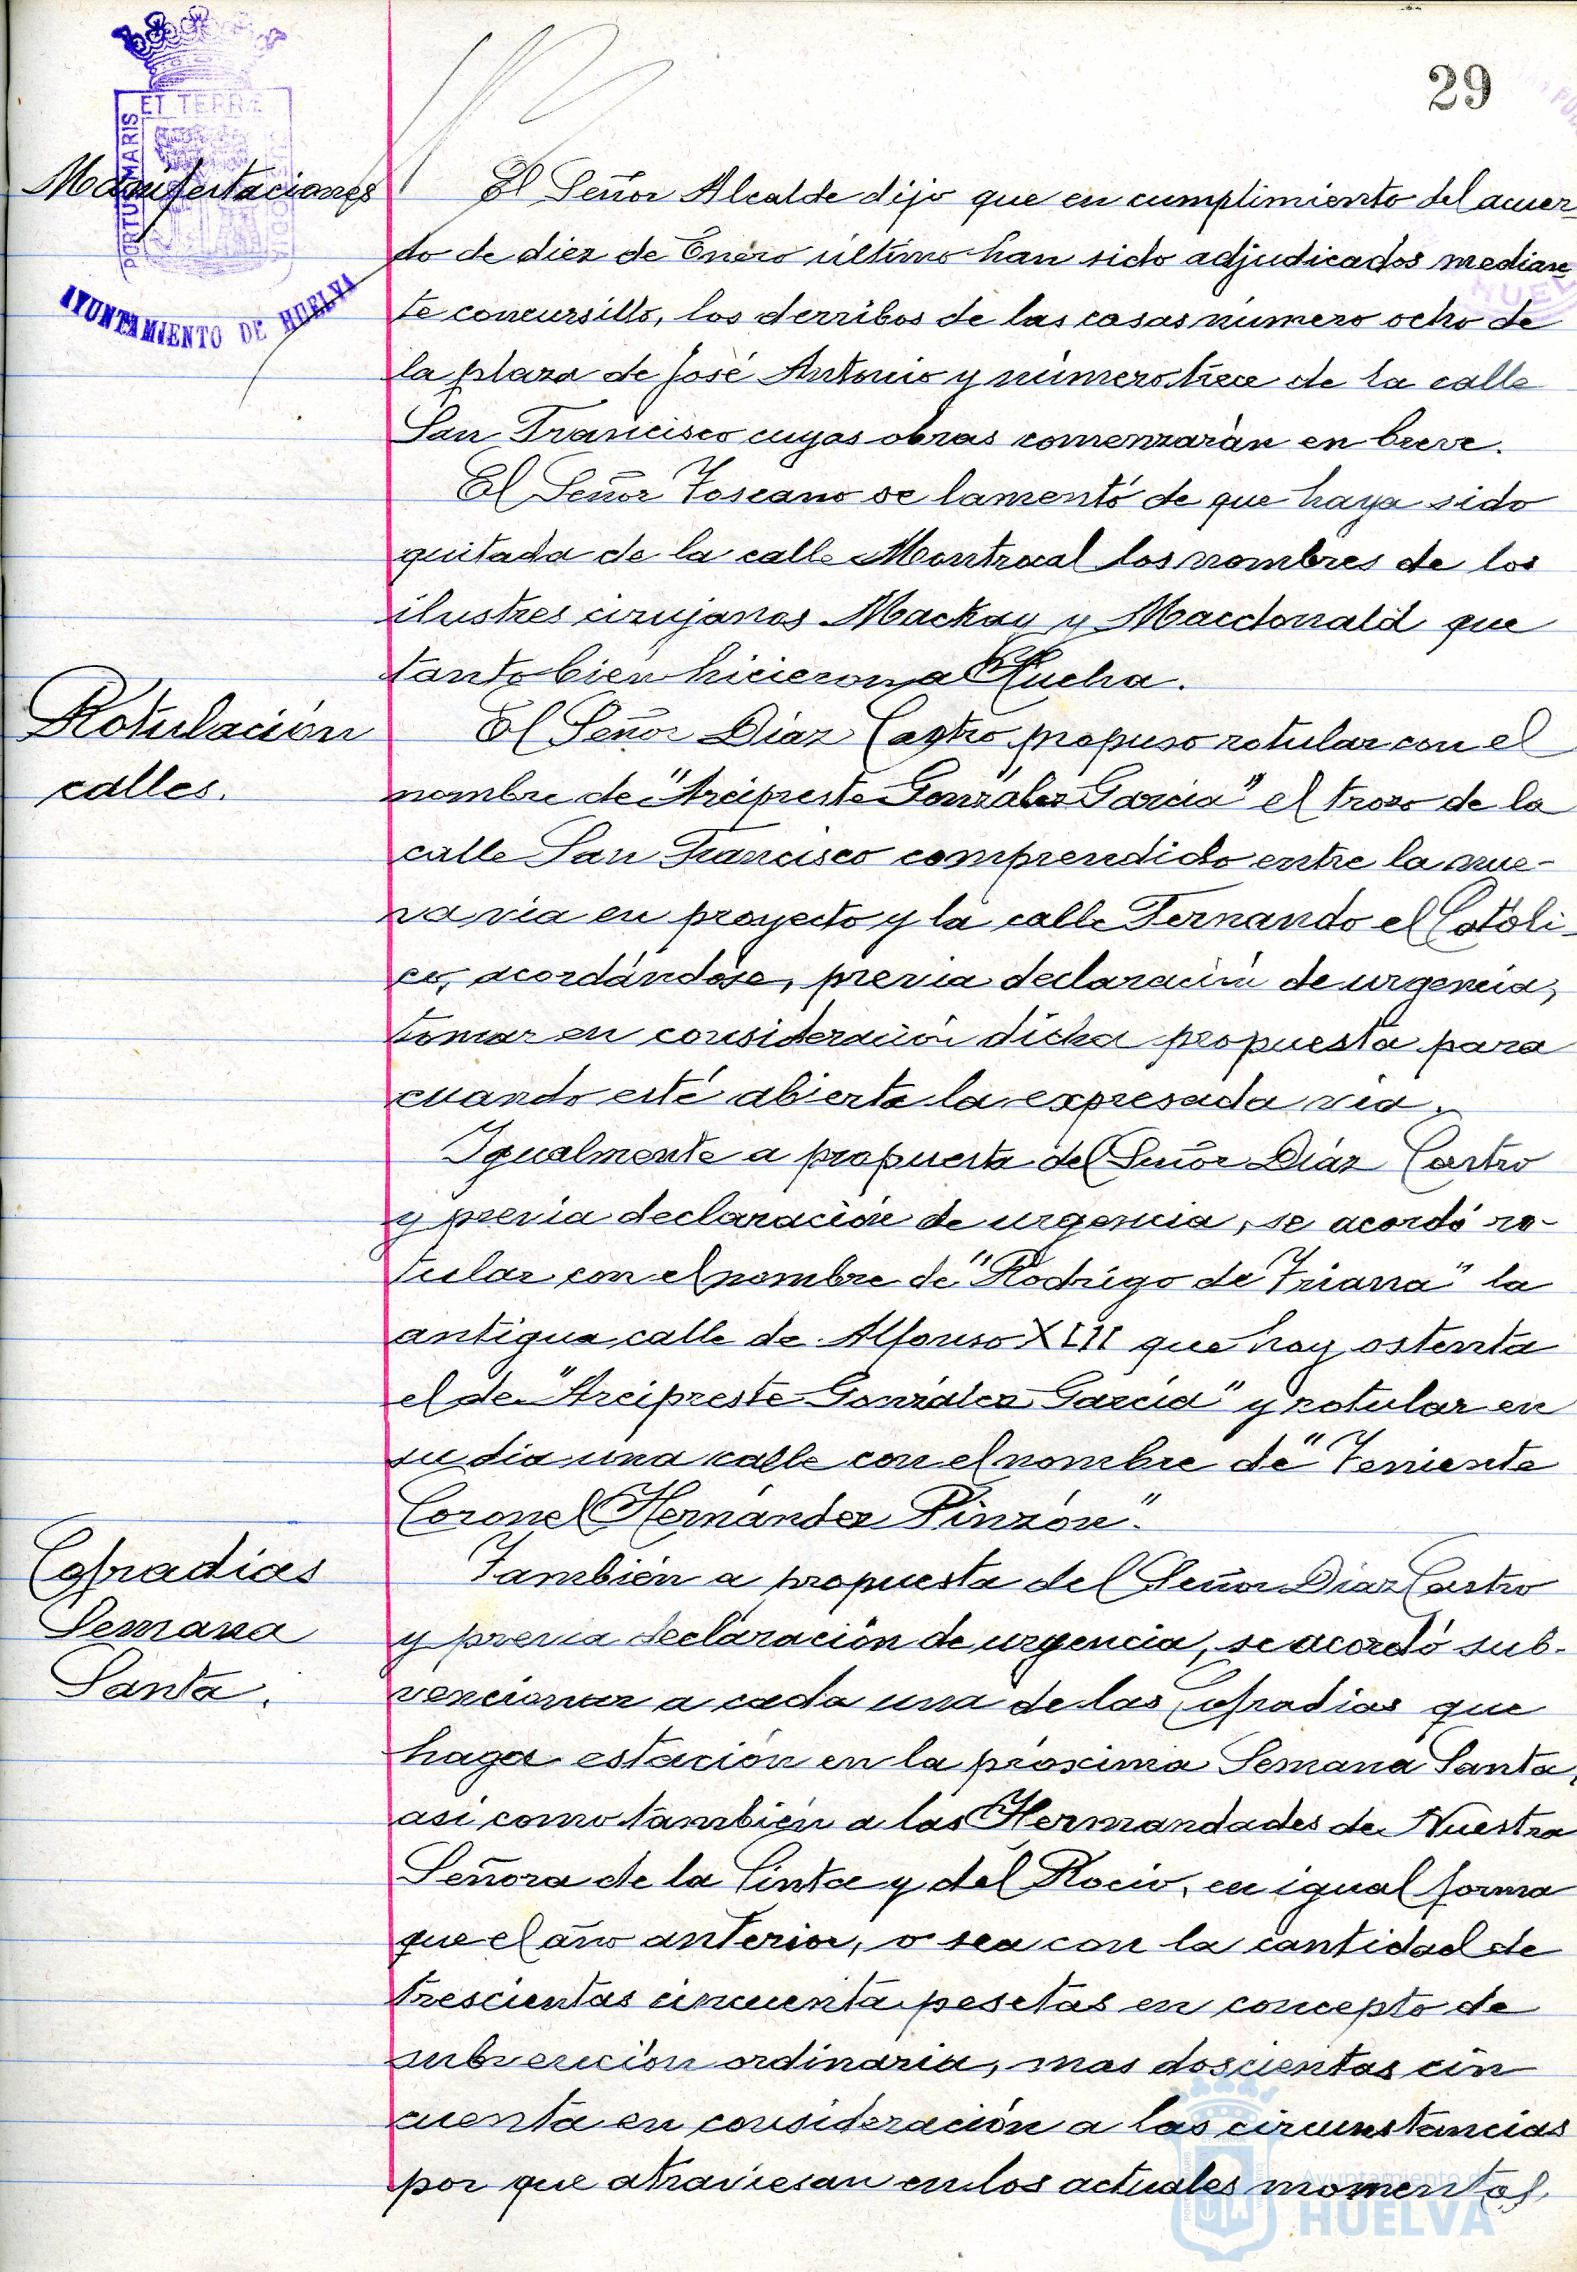 29
PORTUS MARIS
ET TERRE
AYUNTAMIENTO DE HUELVA
Manifestaciones
El Señor Alcalde dijo que en cumplimiento del acuer-
do de diez de Enero último han sido adjudicados median
te concursillo, los derribos de las casas número ocho de
la plaza de José Antonio y número trece de la calle
San Francisco cuyas obras comenzarán en breve.
El Señor Toscano se lamentó de que haya sido
quitada de la calle Montrocal los nombres de los
ilustres cirujanos Mackay y Macdonald que
tanto bien hicieron a Huelva.
Rotulación
calles.
El Señor Díaz Castro propuso rotular con el
nombre de "Arcipreste González García" el trozo de la
calle San Francisco comprendido entre la nue-
va vía en proyecto y la calle Fernando el Católi-
co, acordándose, previa declaración de urgencia,
tomar en consideración dicha propuesta para
cuando esté abierta la expresada vía.
Igualmente a propuesta del Señor Díaz Castro
y previa declaración de urgencia, se acordó ro-
tular con el nombre de "Rodrigo de Triana" la
antigua calle de Alfonso XIII que hoy ostenta
el de "Arcipreste González García" y rotular en
su día una calle con el nombre de "Teniente
Coronel Hernández Pinzón".
Cofradias
Semana
Santa.
También a propuesta del Señor Díaz Castro
y previa declaración de urgencia, se acordó sub-
vencionar a cada una de las Cofradias que
haga estación en la próxima Semana Santa,
asi como también a las Hermandades de Nuestra
Señora de la Cinta y del Rocio, en igual forma
que el año anterior, o sea con la cantidad de
trescientas cincuenta pesetas en concepto de
subvención ordinaria, mas doscientas cin
cuenta en consideración a las circunstancias
por que atraviesan en los actuales momentos
Ayuntamiento de
HUELVA